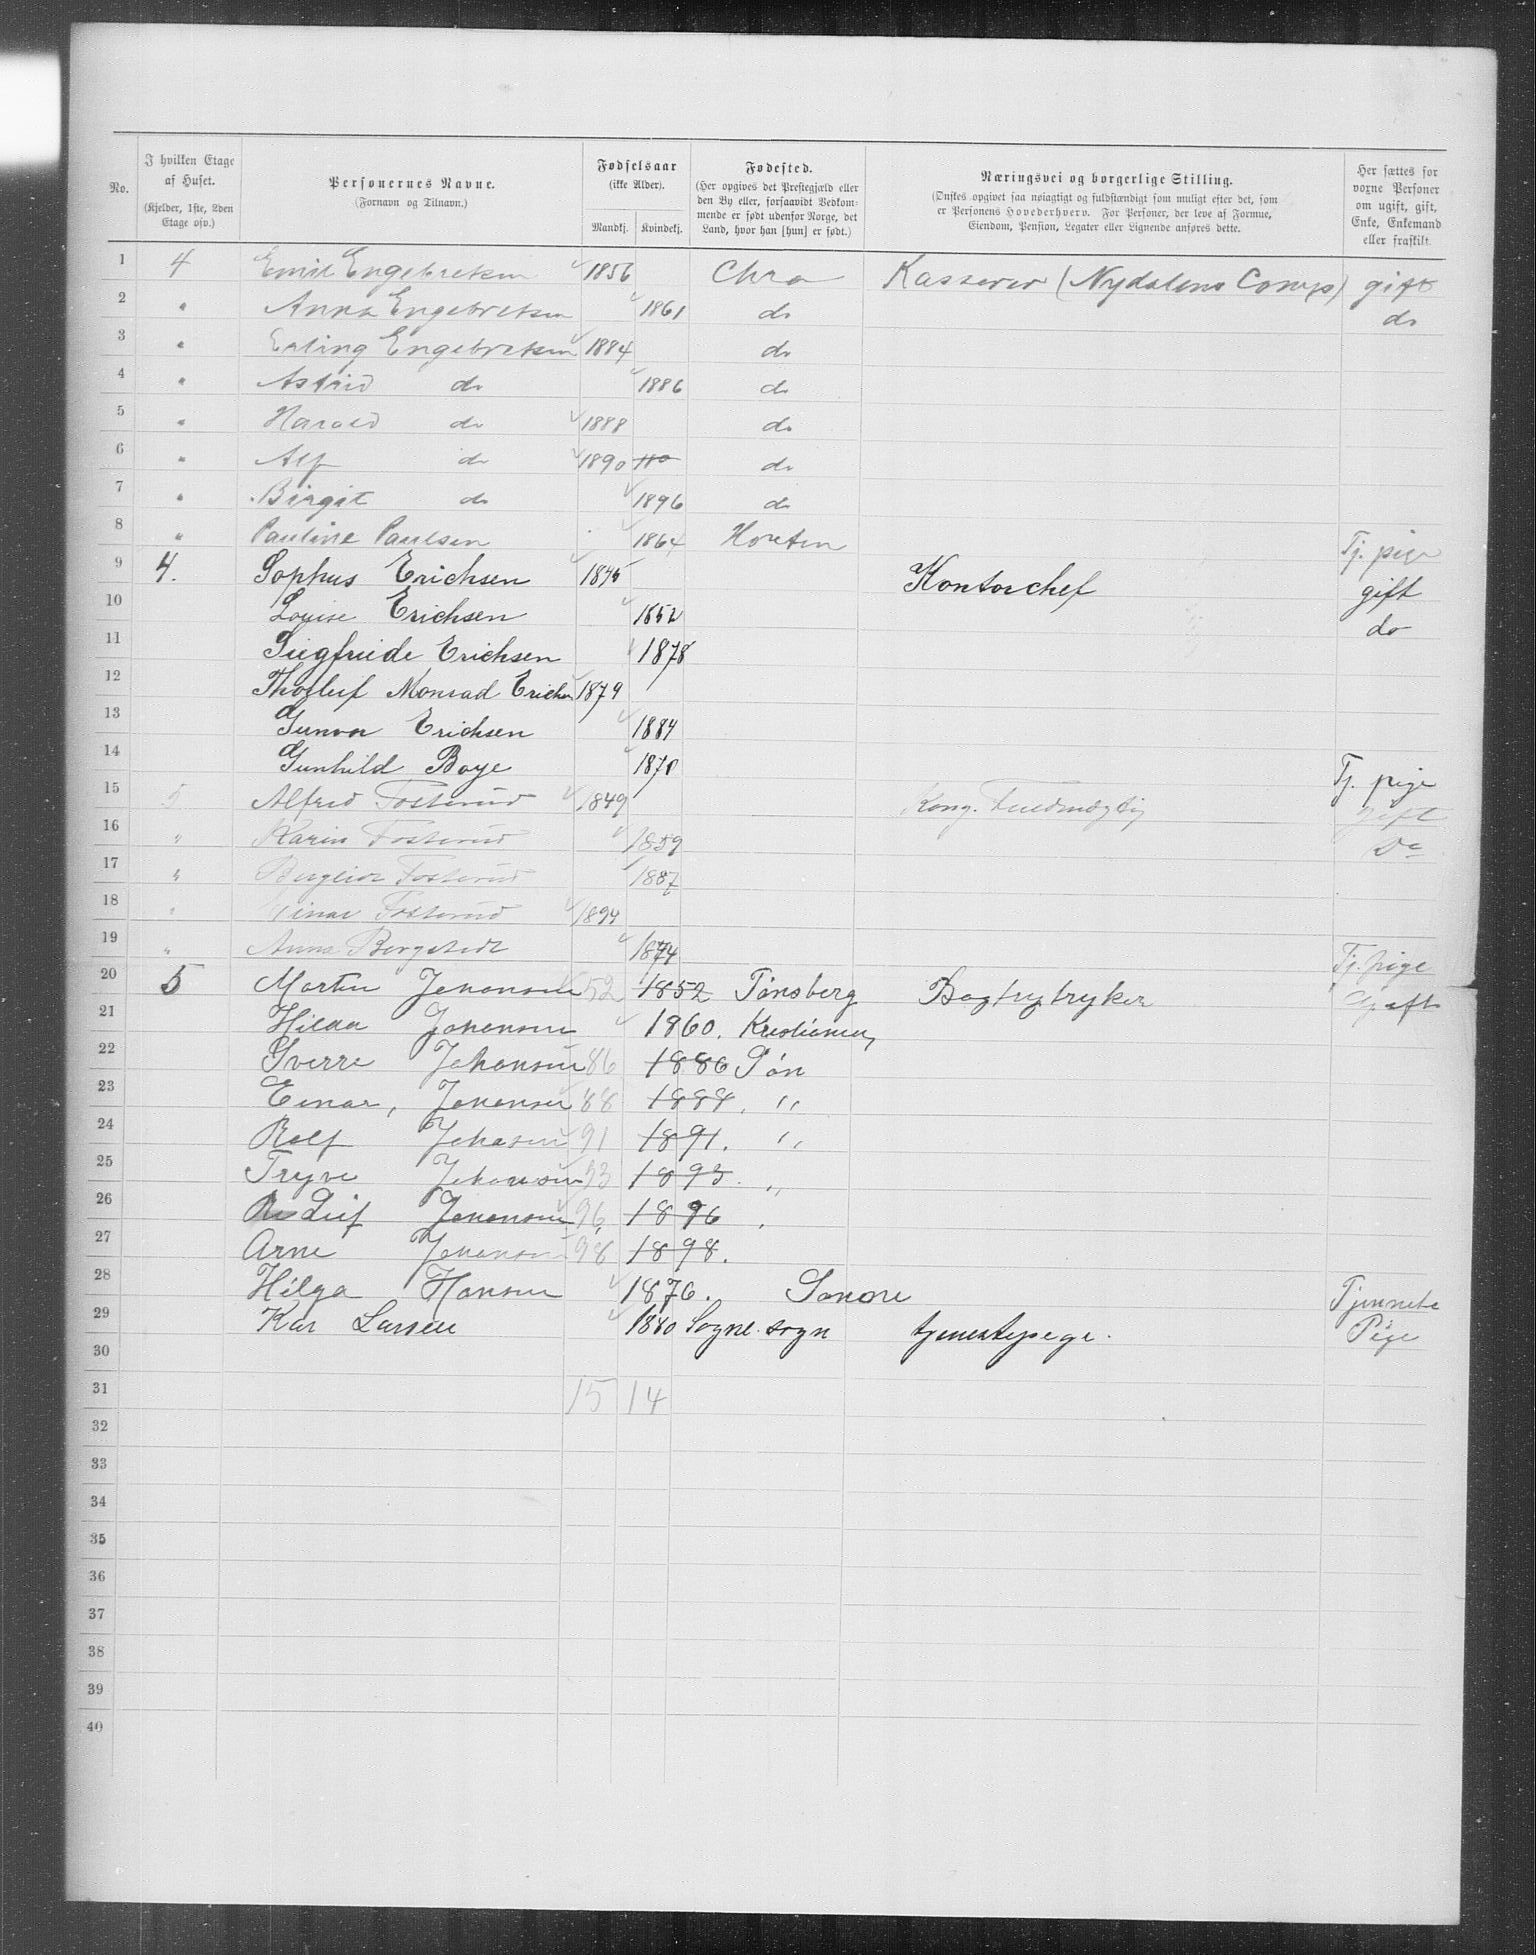 No. | I hvilken Etage af Huset. (Kjelder, 1ste, 2den Etage osv.) | Personernes Navne. (Fornavn og Tilnavn.) | Fødselsaar (ikke Alder). Mandkj. Kvindekj. | Fødested. (Her opgives det Prestegjæld eller den By eller, forsaavidt Vedkommende er født udenfor Norge, det Land, hvor han [hun] er født.) | Næringsvei og borgerlige Stilling. (Ønskes opgivet saa nøiagtigt og fuldstændigt som muligt efter det, som er Personens Hovederhverv. For Personer, der leve af Formue, Eiendom, Pension, Legater eller Lignende anføres dette. | Her sættes for voxne Personer om ugift, gift, Enke, Enkemand eller fraskilt.
1 4 Emil Engebretsen 1856 Chra Kasserer (Nydalens Comp) gift
2 " Anna Engebretsen 1861 do do
3 " Erling Engebretsen 1884 do
4 " Astrid do 1886 do
5 " Harald do 1888 do
6 " Alf do 1890 do
7 " Birgit do 1896 do
8 " Pauline Paulsen 1864 Horten Tj. pige
9 4. Sophus Erichsen 1845 Kontorchef gift
10 Louise Erichsen 1852 do
11 Siegfriede Erichsen 1878
12 Thorluf Monrad Erichsen 1879
13 Gunvor Erichsen 1884
14 Gunhild Boye 1870 Tj. pige
15 5 Alfred Fosterud 1849 Kong. Fuldmægtig gift
16 " Karin Fosterud 1859 Do
17 " Bergliot Fosterud 1887
18 " Einar Fosterud 1894
19 " Anna Bergstedt 1874 Tj. pige
20 5 Martin Johansen 52 1852 Tønsberg Bogtrytryker Gift
21 Hilda Johansen 1860. Kristiania
22 Sverre Johansen 86 1886 Tøn
23 Einar, Johansen 88 1888. "
24 Rolf Johasen 91 1891. "
25 Tryve Johansen 93 1893. "
26 Leif Johansen 96 1896
27 Arne Johansen 98 1898.
28 Hilga Hansen 1876. Sanore Tjenneste
29 Kar Larsen 1880 Sogne sogn tjenestepege. Pige
30
31 15 14
32
33
34
35
36
37
38
39
40